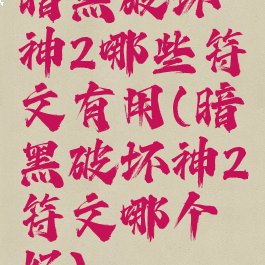 暗黑破坏
神2哪些符
文有用(暗
黑破坏神2
符文哪个
好)